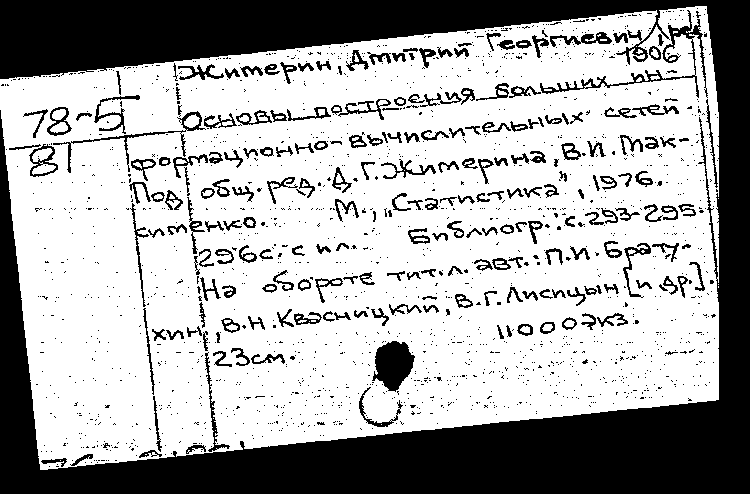 Житерин, Дмитрий Георгиевич, ред.
1906
78-5
81
Основы построения больших ин-
формационно-вычислительных сетей.
Под общ. ред. Д.Г. Житерина, В.И. Мак-
сименко. М., „Статистика", 1976.
296с. с ил. Библиогр.: с. 293-295.
На обороте тит. л. авт.: П.И. Брату-
хин, В.Н. Квасницкий, В.Г. Лисицын [и др.].
23см. 11000экз.